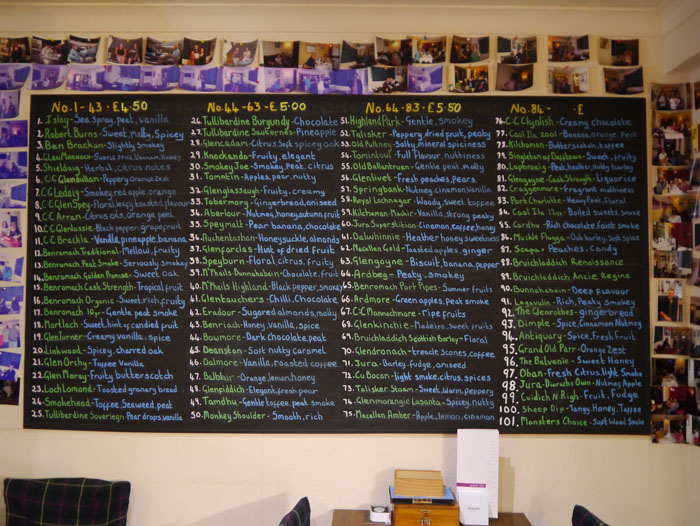 No. 1-43 - £4.50
1. Islay - Sea spray, peat, vanilla
2. Robert Burns - Sweet, malty, Spicey
3. Ben Brackan - Slightly Smokey
5. Shieldaig - Herbal, citrus notes
6. C-C Glen Gullan - Peppery, Orange Zest
7. C-C Ledaig - Smokey, red apple, orange
8. C-C Glen Spey - Floral, long, toasted flavour
9. C-C Arran - Citrus oils, orange peel
10. C-C Glenlossie - Black pepper, grapefruit
11. C-C Brackla - Vanilla, pineapple, banana
12. Benromach Traditional - Mellow, fruity
13. Benromach Peat Smoke - Seriously smokey
14. Benromach Golden Promise - Sweet Oak
15. Benromach Cask Strength - Tropical fruit
16. Benromach Organic - Sweet, rich, fruity
17. Benromach 10yr - Gentle peat smoke
18. Mortlach - Sweet, hint of candied fruit
19. Glen Turner - Creamy vanilla, spice
20. Linkwood - Spicey, charred oak
21. Glen Orchy - Toffee Vanilla
22. Glen Moray - Fruity butterscotch
23. Loch Lomond - Toasted granary bread
24. Smokehead - Toffee, Seaweed, peat
25. Tullibardine Sovereign - Pear drops, vanilla
No. 44-63 - £5.00
26. Tullibardine Burgundy - Chocolate
27. Tullibardine Sauternes - Pineapple
28. Glencadam - Citrus, Soft spicey oak
29. Knockando - Fruity, elegant
30. Smokey Joe - Smokey, Peat, citrus
31. Tomatin - Apples, pear, nutty
32. Glenglassaugh - fruity, creamy
33. Tobermory - Gingerbread, aniseed
34. Aberlour - Nutmeg, honey, autumn fruit
35. Speymalt - Pear banana, chocolate
36. Auchentoshan - Honeysuckle, almonds
37. Glenfarclas - Hint of dried fruit
38. Speyburn - Floral, citrus, fruity
39. McPhails Bunnahabain - Chocolate, fruit
40. McPhails Highland - Black pepper, smokey
41. Glentauchers - Chilli, Chocolate
42. Edradour - Sugared almonds, malty
43. Benriach - Honey, vanilla, spice
44. Bowmore - Dark chocolate, peat
45. Deanston - Soft nutty caramel
46. Dalmore - Vanilla, roasted coffee
47. Balblair - Orange, lemon, honey
48. Glenfiddich - Elegant, fresh pear
49. Tamdhu - Gentle toffee, peat smoke
50. Monkey Shoulder - Smooth, rich
No. 64-83 - £5.50
51. Highland Park - Gentle, Smokey
52. Talisker - Peppery, dried fruit, peaty
53. Old Pulteney - Salty, mineral spiciness
54. Tomintoul - Full Flavour nuttiness
55. Old Ballantruan - Gentle peat, malty
56. Glenlivet - Fresh peaches, Pears
57. Springbank - Nutmeg, cinnamon, vanilla
58. Royal Lochnagar - Woody, sweet toffee
59. Kilchoman Machir - Vanilla, strong peaky
60. Jura Superstition - Cinnamon, coffee, honey
61. Dalwhinnie - Heather honey sweetness
62. Macallan Gold - Toasted apples, ginger
63. Glengoyne - Biscuit, banana, pepper
64. Ardbeg - Peaty, smokey
65. Benromach Port Pipes - Summer fruits
66. Ardmore - Green apples, peat smoke
67. C-C Mannachmore - ripe fruits
68. Glenkinchie - Madeira, sweet fruits
69. Bruichladdich Scottish Barley - Floral
70. Glendronach - treacle scones, coffee
71. Jura - Barley, fudge, aniseed
72. Cu Bocan - light smoke, citrus, spices
73. Talisker Storm - Sweet, warm, peppery
74. Glenmorangie Lasanta - Spicey, nutty
75. Macallan Amber - Apple, lemon, cinnamon
No. 84 - - £
76. C-C Clynlish - Creamy, chocolate
77. Caol Ila 2001 - Banana, orange, Peat
78. Kilchoman - Butterscotch, toffee
79. Singleton of Dufftown - Sweet, fruity
80. Laphroaig - Peat, heather, nutty, sugar
81. Glengoyne - Cask Strength - Liquorice
82. Craggenmore - Fragrant maltiness
83. Port Charlotte - Heavy Peat, Floral
84. Caol Ila 12yr - Boiled sweets, smoke
85. Cardhu - Rich chocolate, faint smoke
86. Muckle Flugga - Oak barley, Soft spice
87. Scapa - Peaches, Candy
88. Bruichladdich Renaissance
89. Bruichladdich Ancie Regime
90. Bunnahabain - Deep flavour
91. Lagavulin - Rich, Peaty, smokey
92. The Glenrothes - gingerbread
93. Dimple - Spice, Cinnamon Nutmeg
94. Antiquary - Spice, Fresh Fruit
95. Grand Old Parr - Orange Zest
96. The Balvenie - Sweet Honey
97. Oban - Fresh Citrus, light Smoke
98. Jura - Diurachs Own - Nutmeg Apple
99. Cuidich N Righ - Fruit, Fudge
100. Sheep Dip - Tangy, Honey, Toffee
101. Monsters Choice - Soft Wood Smoke